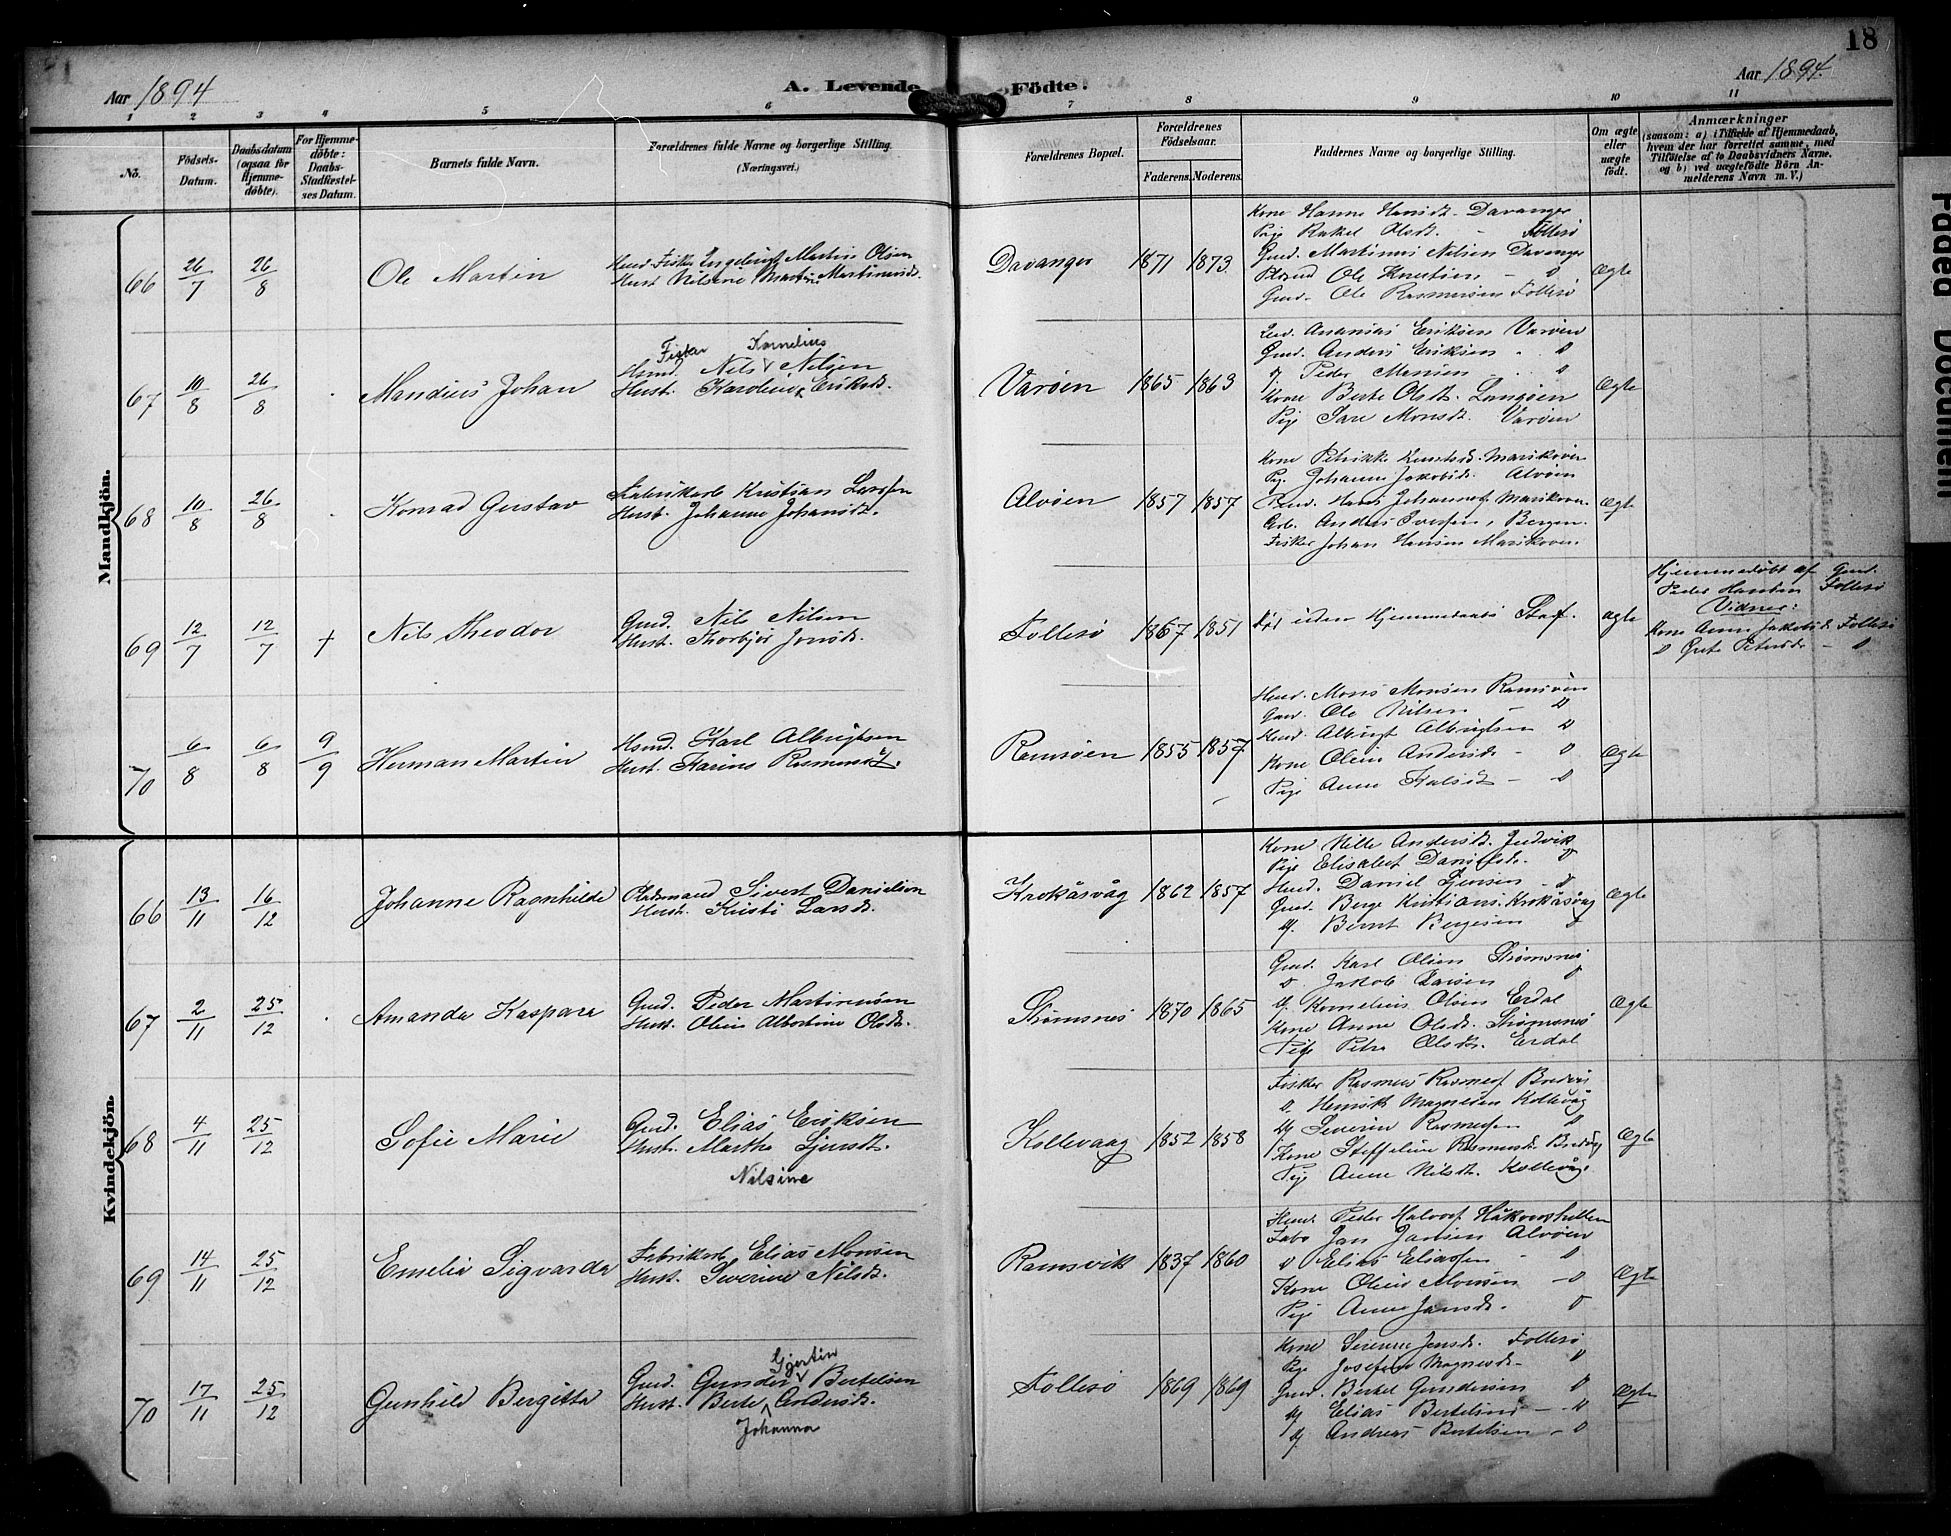 18
Aar 1894
A. Levende Födte.
Aar 1894.
1 2 3 4 5 6 7 8 9 10 11
No.
Födsels-Datum.
Daabsdatum (ogsaa for Hjemme-döbte).
For Hjemme-döbte: Daabs-Stadfæstel-ses Datum.
Barnets fulde Navn.
Forældrenes fulde Navne og borgerlige Stilling. (Næringsvei.)
Forældrenes Bopæl.
Forældrenes Födselsaar.
Faderens. Moderens.
Faddernes Navne og borgerlige Stilling.
Om ægte eller uægte födt.
Anmærkninger
(saasom: a) i Tilfælde af Hjemmedaab, hvem der har forrettet samme, med Tilföielse af to Daabsvidners Navne. og b) ved uægtefödte Börn Anmelderens Navn m. V.)
Mandkjön.
66 26/7 26/8 Ole Martin
Husm. Fisker Ingebrigt Martin Olsen
Hust. Nilsine Martine Martinusd.
Davanger 1871 1873
Kone Hanne Hansd. Davanger
Pige Rakel Olsd. - Follesö
Gmd. Martinus Nilsen Davanger
Ole Knutsen - D
Gmd. Ole Rasmussen Follesö
Ægte
67 10/8 26/8 Mandius Johan
Fisker Kornelius
Hsmd. Nils Nilsen
Hust. Karoline Eriksd.
Varöen 1865 1863
Ananias Eriksen Varöen
Gmd. Anders Eriksen - D
Peder Monsen - D
Kone Berte Olsdt. Langöen
Pige Sare Monsdt. Varöen
Ægte
68 10/8 26/8 Konrad Gustav
Fabrikarb. Kristian Larsen
Hust. Johanne Johansdt.
Alvöen 1857 1857
Kone Petrikke Knutsd. Marikoven
Pig. Johanne Jakobsd. Alvöen
Hans Johannes. Marikoven
Arb. Anders Iversen, Bergen.
Fisker Johan Hansen Marikoven.
Ægte
69 12/7 12/7 + Nils Theodor
Gmd. Nils Nilsen
Hust. Thorbjör Jonsd.
Follesö 1867 1851
Död uden Hjemmedaabs Staf.
ægte
Hjemmedöbt af Gmd.
Peder Hansen Follesö
Vidner:
Kone Anne Jakobsd. Follesö
D Grete Petersd. - D
70 6/8 6/8 9/9 Herman Martin
Hsmd. Karl Albrigtsen
Hust. Karine Rasmusdt.
Ramsöen 1855 1857
Husd. Mons Monsen Ramsöen
Gmd. Ole Nilsen - D
Husd. Albrigt Albrigtsen D
Kone Oline Andersd. - D
Pige Anne Karlsdt - D
Ægte
Kvindekjön.
66 13/11 16/12 Johanne Ragnhilde
Pladsmand Sivert Danielsen
Hust. Kristi Larsd.
Krokåsvåg 1862 1857
Kone Nille Andersd. Judvik
Pige Elisabet Danielsd. D
Husd. Daniel D
Gmd. Berge Kristians. Krokåsvåg
Uf. Bernt Bergesen D
Ægte
67 2/11 25/12 Amanda Kaspara
Gmd. Peder Martinussen
Hust. Oline Albertine Olsd.
Strömsnes 1870 1865
Gmd. Karl Olsen Strömsnes
D Jakob Larsen D
Uf. Kornelius Olsen Erdal
Kone Anne Olsd. Strömsnes
Pige Petra Olsd. Erdal
Ægte
68 4/11 25/12 Sofie Marie
Gmd. Elias Eriksen
Hust. Martha
Nilsine
Kollevaag 1852 1858
Fisker Rasmus Rasmes. Bredvig
D Henrik Magnesen Kollevåg
Uf Severin Rasmessen D
Kone Steffeline Rasmusd. Bredvig
Pige Anne Nilsdt. Kollevåg.
Ægte
69 14/11 25/12 Emelie Sigvarda
Fabrikarb. Elias Monsen
Hust. Severine Nilsd.
Ramsvik 1837 1860
Husd. Peder Håkonshellen
Fabr. Jan Jansen Alvöen
D Elias Eliassen - D
Kone Oline Monsen - D
Pige Anne Jansd. D
Ægte
70 17/11 25/12 Gunhild Bergitta
Gjertin
Gmd. Gunder Bertelsen
Hust. Berte Andersd.
Johanna
Follesö 1869 1869
Kone Serine Jensd. Follesö
Pige Josefine Magnesd. - D
Gmd. Bertel Gundersen D
Uf Elias Bertelsen - D
Uf. Andreas Bertelsen - D
Ægte
Faded Document